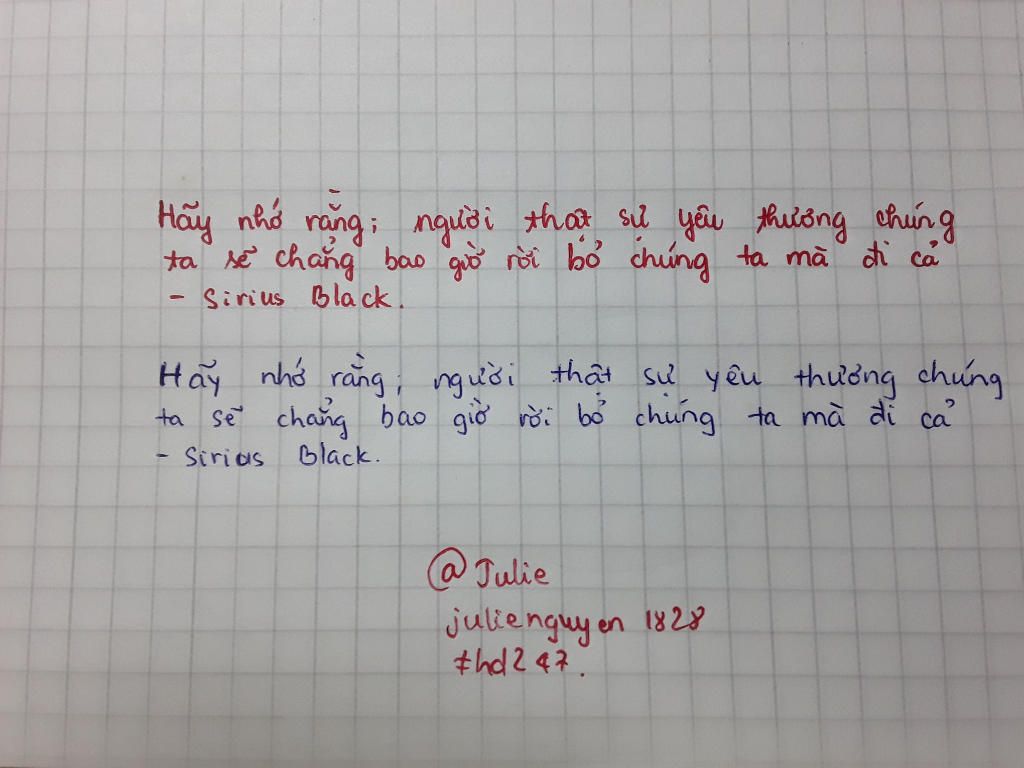 Hãy nhớ rằng; người thật sự yêu thương chúng
ta sẽ chẳng bao giờ rời bỏ chúng ta mà đi cả
- Sirius Black.
Hãy nhớ rằng; người thật sự yêu thương chúng
ta sẽ chẳng bao giờ rời bỏ chúng ta mà đi cả
- Sirius Black.
@Julie
julienguyen 1828
#hd247.